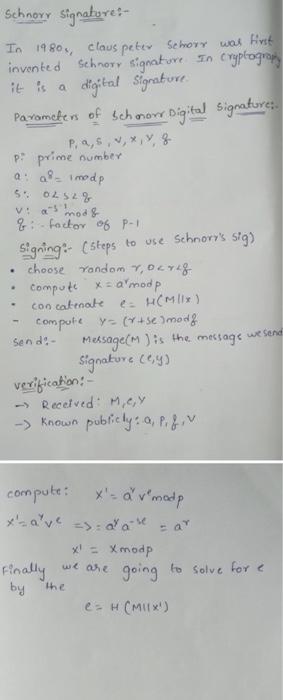 Schnorr Signature:-
In 1980s, claus peter Schorr was first
invented Schnorr signature. In Cryptography
it is a digital Signature.
Parameters of Schnorr Digital Signature:.
P, a, s, v, x, y, q
P: prime number
a: a^q = 1 mod p
S: 0<s<q
V: a^-s mod q
q: - factor of P-1
Signing:- (steps to use Schnorr's Sig)
• choose random r, 0<r<q
• compute x = a^r mod p
• concatenate e = H(M||x)
- compute y = (r+se) mod q
send:- Message(M) is the message we send
Signature (e,y)
verification:-
→ Received: M, e, y
→ Known publicly: a, P, q, V
compute: x' = a^y v^e mod p
x' = a^y v^e => = a^y a^-se = a^r
x' = x mod p
Finally we are going to solve for e
by the
e = H (M||x')